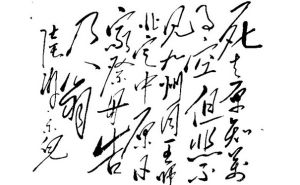 死去原知萬
事空但悲不
見九州同王師
北定中原日
家祭毋忘告
乃翁
陸游示兒